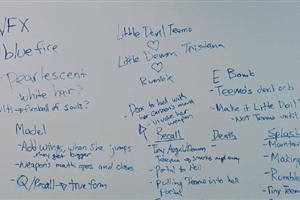 VFX
blue fire
- Pearlescent
white hair?
Ulti → fireball of souls?
Model
- Add wings, when she jumps
they get bigger
- Weapon's mouth opens and closes
- Q/Recall → true form
Little Devil Teemo
♡
Little Demon Tristana
♡
Rumble
- Door to hell with
her cannon's mouth
weapon
Recall
- Tiny Angel Teemo
- Portal to hell
- Pulling Teemo into hell
Portal
Death
E Bomb
- Teemo's devil orb
- Make it Little Devil
Teemo
Splash
- Mountain
Making
Rumble
- Tiny Teemo